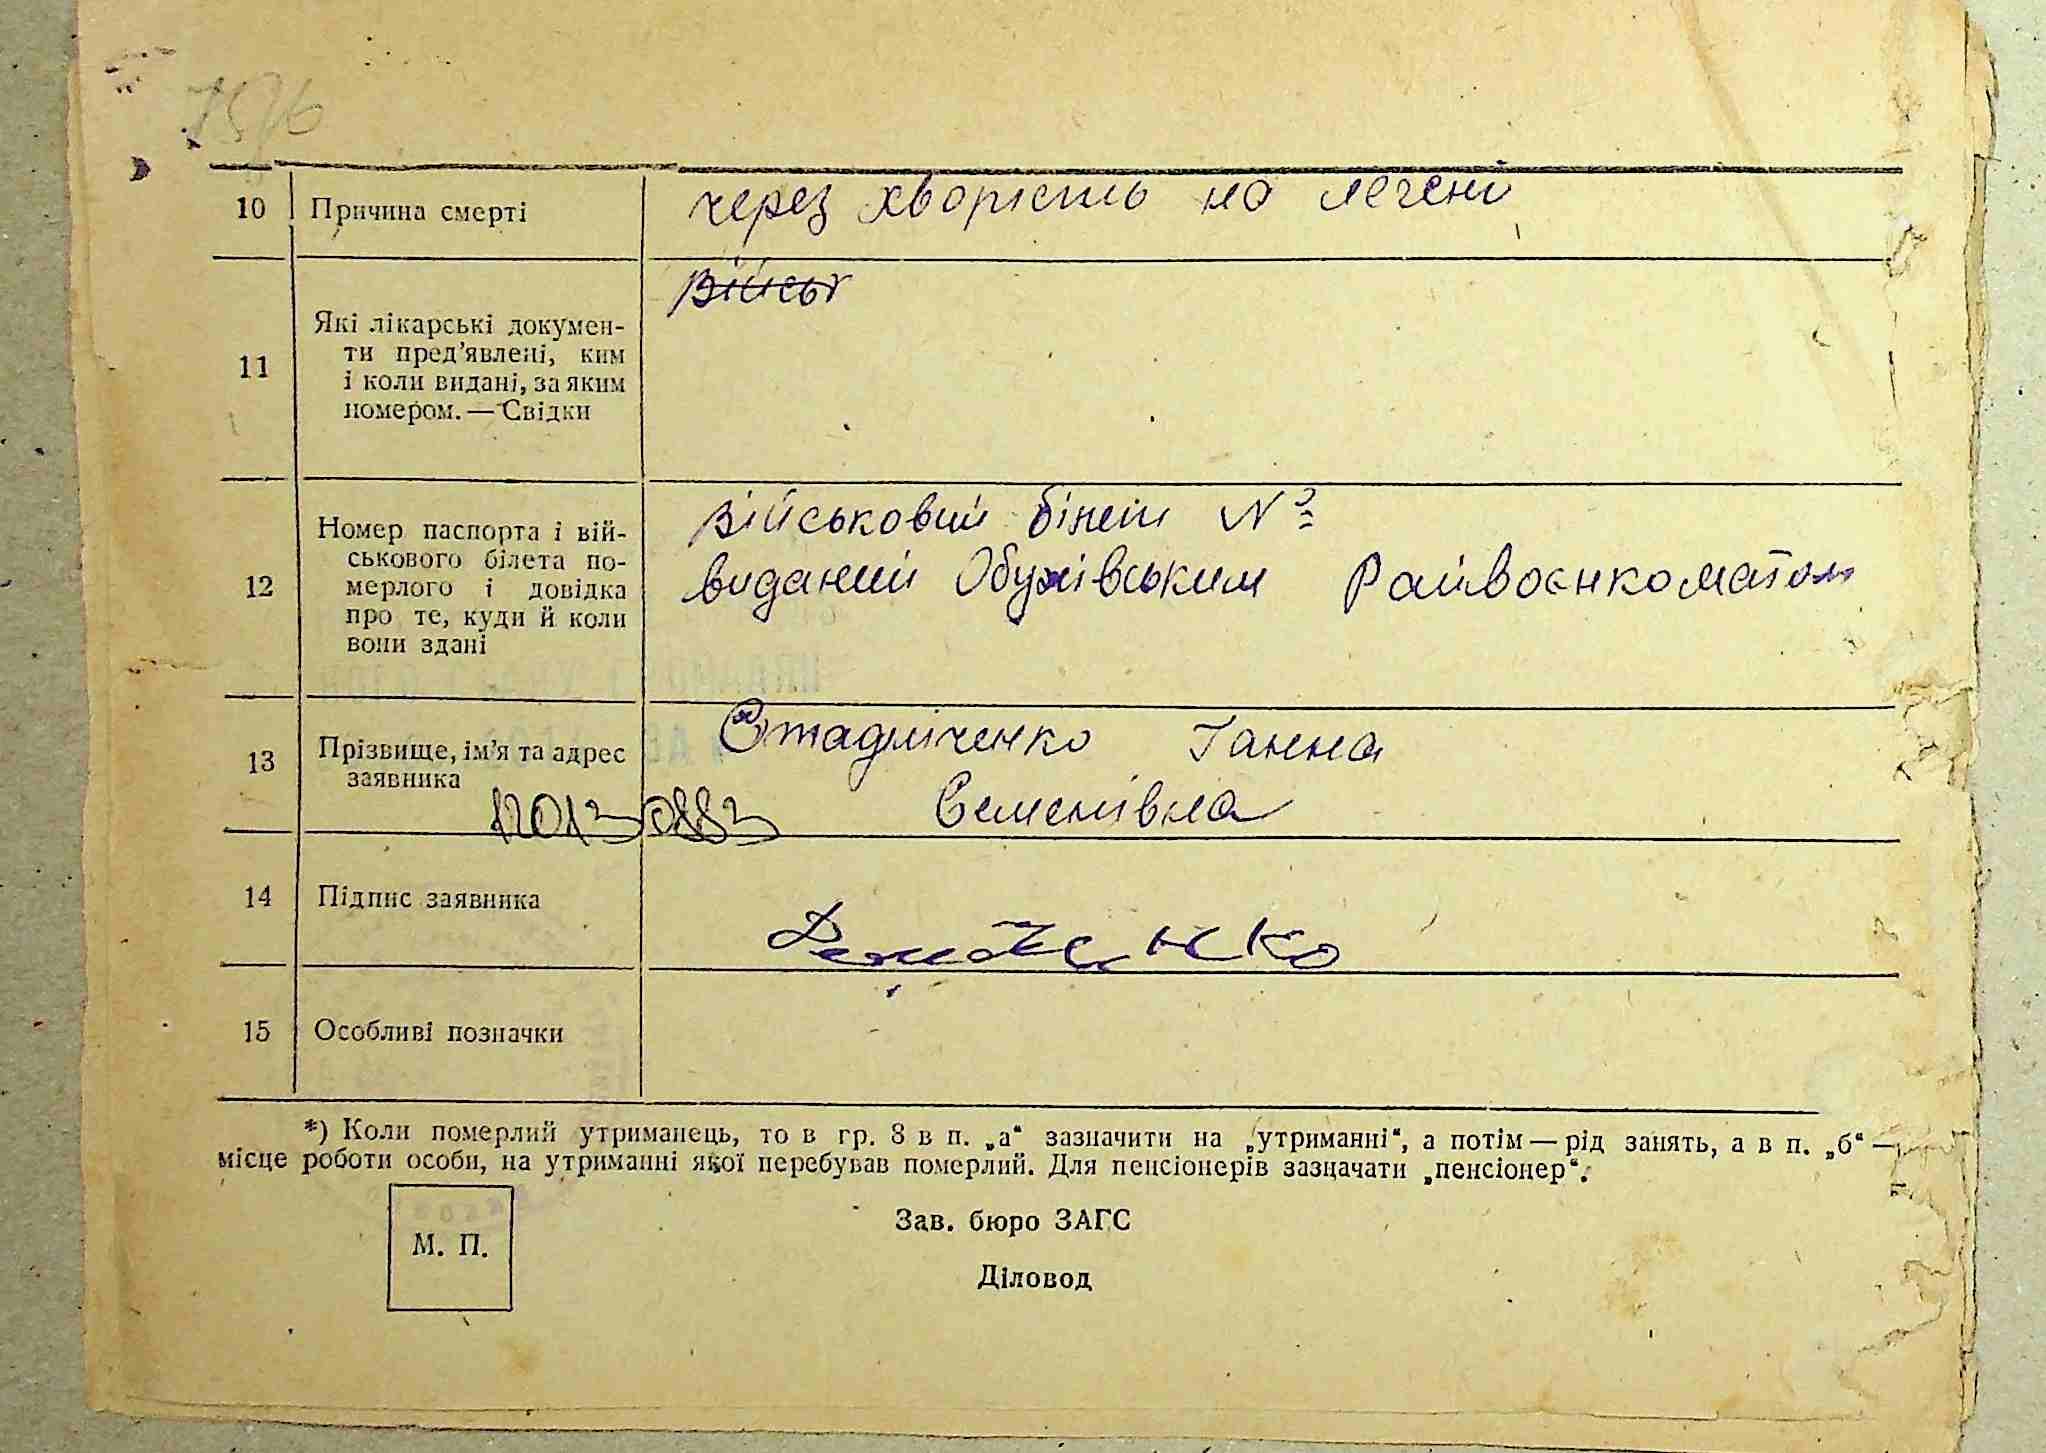 7576
10 Причина смерті через хворість на легені
11 Які лікарські докумен-
ти пред'явлені, ким
і коли видані, за яким
номером. — Свідки
Війсьт
12 Номер паспорта і вій-
ськового білета по-
мерлого і довідка
про те, куди й коли
вони здані
Військовий білет №
виданий Обухівським Райвоєнкоматом
13 Прізвище, ім'я та адрес
заявника
Стадніченко Ганна
Семенівна
14 Підпис заявника
15 Особливі позначки
*) Коли померлий утриманець, то в гр. 8 в п. „а“ зазначити на „утриманні“, а потім — рід занять, а в п. „б“ —
місце роботи особи, на утриманні якої перебував померлий. Для пенсіонерів зазначати „пенсіонер“.
М. П.
Зав. бюро ЗАГС
Діловод